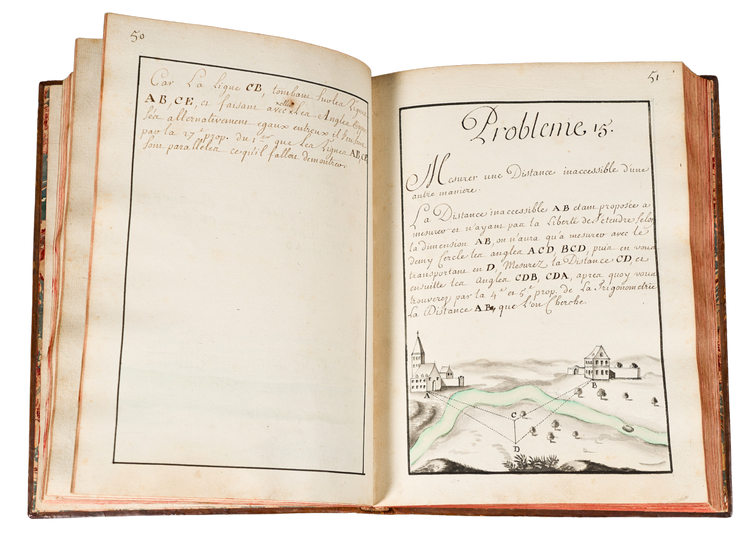 50
Car La Ligne CB, tombant sur les Lignes
AB, CE, et faisant avec elles les Angles
alternativement egaux entreux, il s'en suit
par la 27e prop. du 1er que Les Lignes AB, CE,
sont paralleles ce qu'il falloit demontrer.
51
Probleme 15.
Mesurer une Distance inaccessible d'une
autre maniere.
La Distance inaccessible AB etant proposée a
mesurer et n'ayant pas la Liberté de s'etendre selon
la dimension AB, on n'aura qu'a mesurer avec le
demy Cercle les angles ACD, BCD, puis en vous
transportant en D, Mesurez la Distance CD, et
ensuitte les Angles CDB, CDA, apres quoy vous
trouverez par la 4e et 5e prop. de La Trigonometrie
La Distance AB, que l'on Cherche.
A
B
C
D